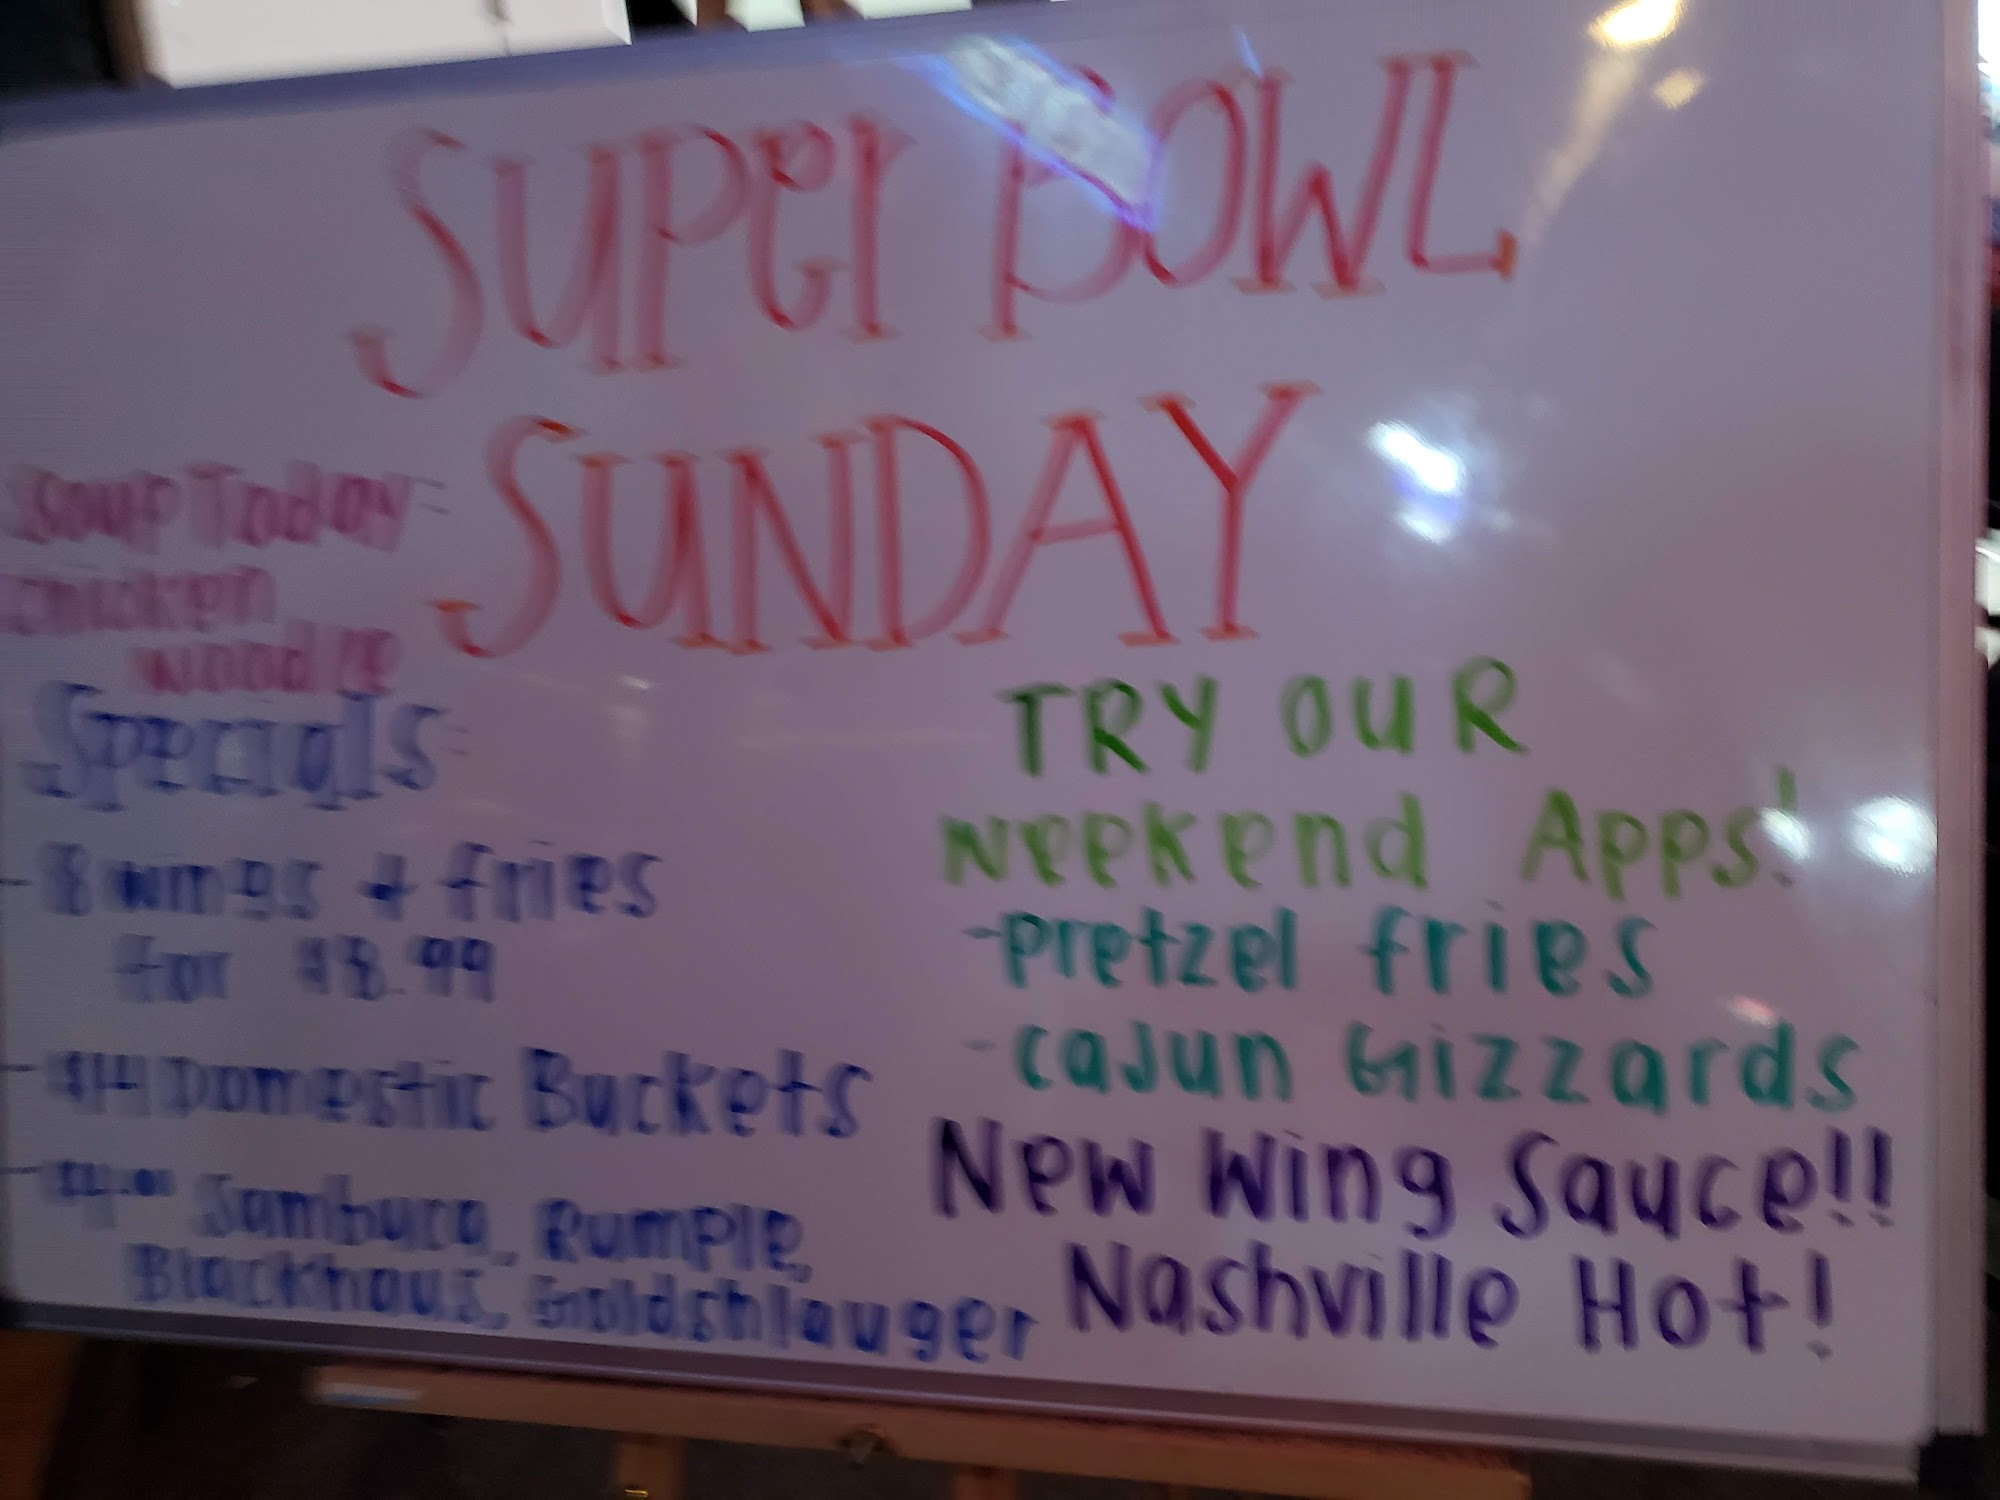 Super Bowl
Sunday
Soup Today:
Chicken
Noodle
Specials:
- 8 wings + fries
for $8.99
- $14 Domestic Buckets
- $4.00 Sambuca, Rumple,
Blackhaus, Goldshlauger
TRY OUR
Weekend Apps!
- Pretzel fries
- Cajun Gizzards
New Wing Sauce!!
Nashville Hot!